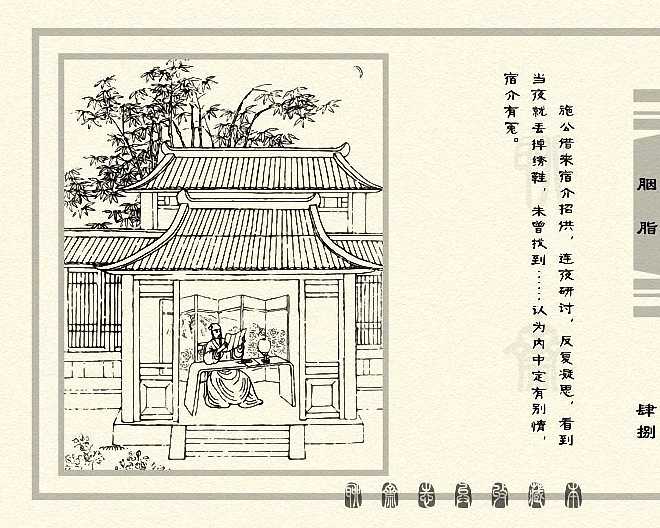 胭脂
肆捌
施公借来宿介招供，连夜研讨，反复凝思，看到
当夜就丢掉绣鞋，未曾找到……认为内中定有别情，
宿介有冤。
聊斋志异收藏本